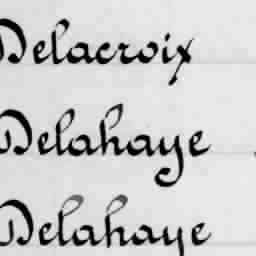 Delacroix
Delahaye
Delahaye